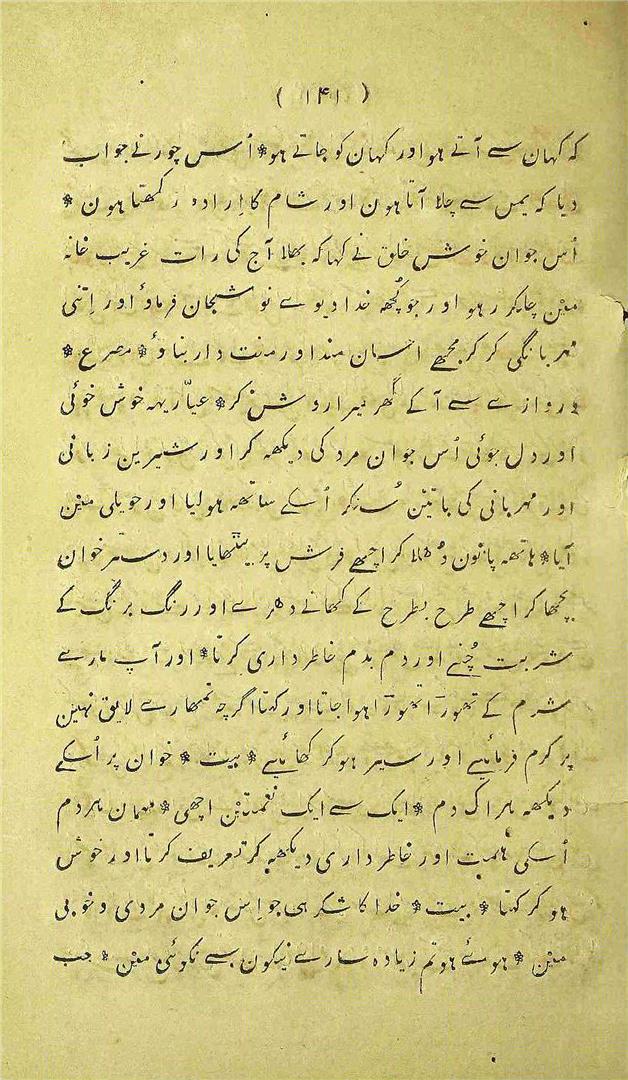 ( ۱۴۱ )
کہ کہان سے آتے ہو اور کہان کو جاتے ہو * اُس چور نے جواب
دیا کہ یمن سے چلا آتا ہون اور شام کا اِرادہ رکھتا ہون *
اُس جوان خوش خلق نے کہا کہ بھلا آج کی رات غریب خانہ
مین چلکر رہو اور جو کُچھ خدا دیوے نوشجان فرماؤ اور اِتنی
مہربانگی کر کر مجھے احسان مند اور منت دار بناؤ * مصرع *
دروازے سے آکے گھر میرا روشن کر * عیّار یہہ خوش خوئی
اور دل جوئی اُس جوان مرد کی دیکھہ کر اور شیرین زبانی
اور مہربانی کی باتین سُنکر اُسکے ساتھہ ہو لیا اور حویلی مین
آیا * ہاتھہ پانون دُھلا کر اچھے فرش پر بیتھایا اور دسترخوان
بچھا کر اچھے طرح بطرح کے کھانے دھرے اور رنگ برنگ کے
شربت چُنے اور دم بدم خاطرداری کرتا * اور آپ مارے
شرم کے تھورا تھورا ہوا جاتا اور کہتا اگرچہ تمھارے لایق نہین
پر کرم فرمائیے اور سیر ہو کر کھائیے * بیت * خوان پر اُسکے
دیکھہ ہر اک دم * ایک سے ایک نعمتین اچھی * مہمان ہر دم
اُسکی ہمت اور خاطرداری دیکھہ کر تعریف کرتا اور خوش
ہو کر کہتا * بیت * خدا کا شکر ہی جو اِس جوان مردی و خوبی
مین * ہوئے ہو تم زیادہ سارے نیکون سے نکوئی مین * جب